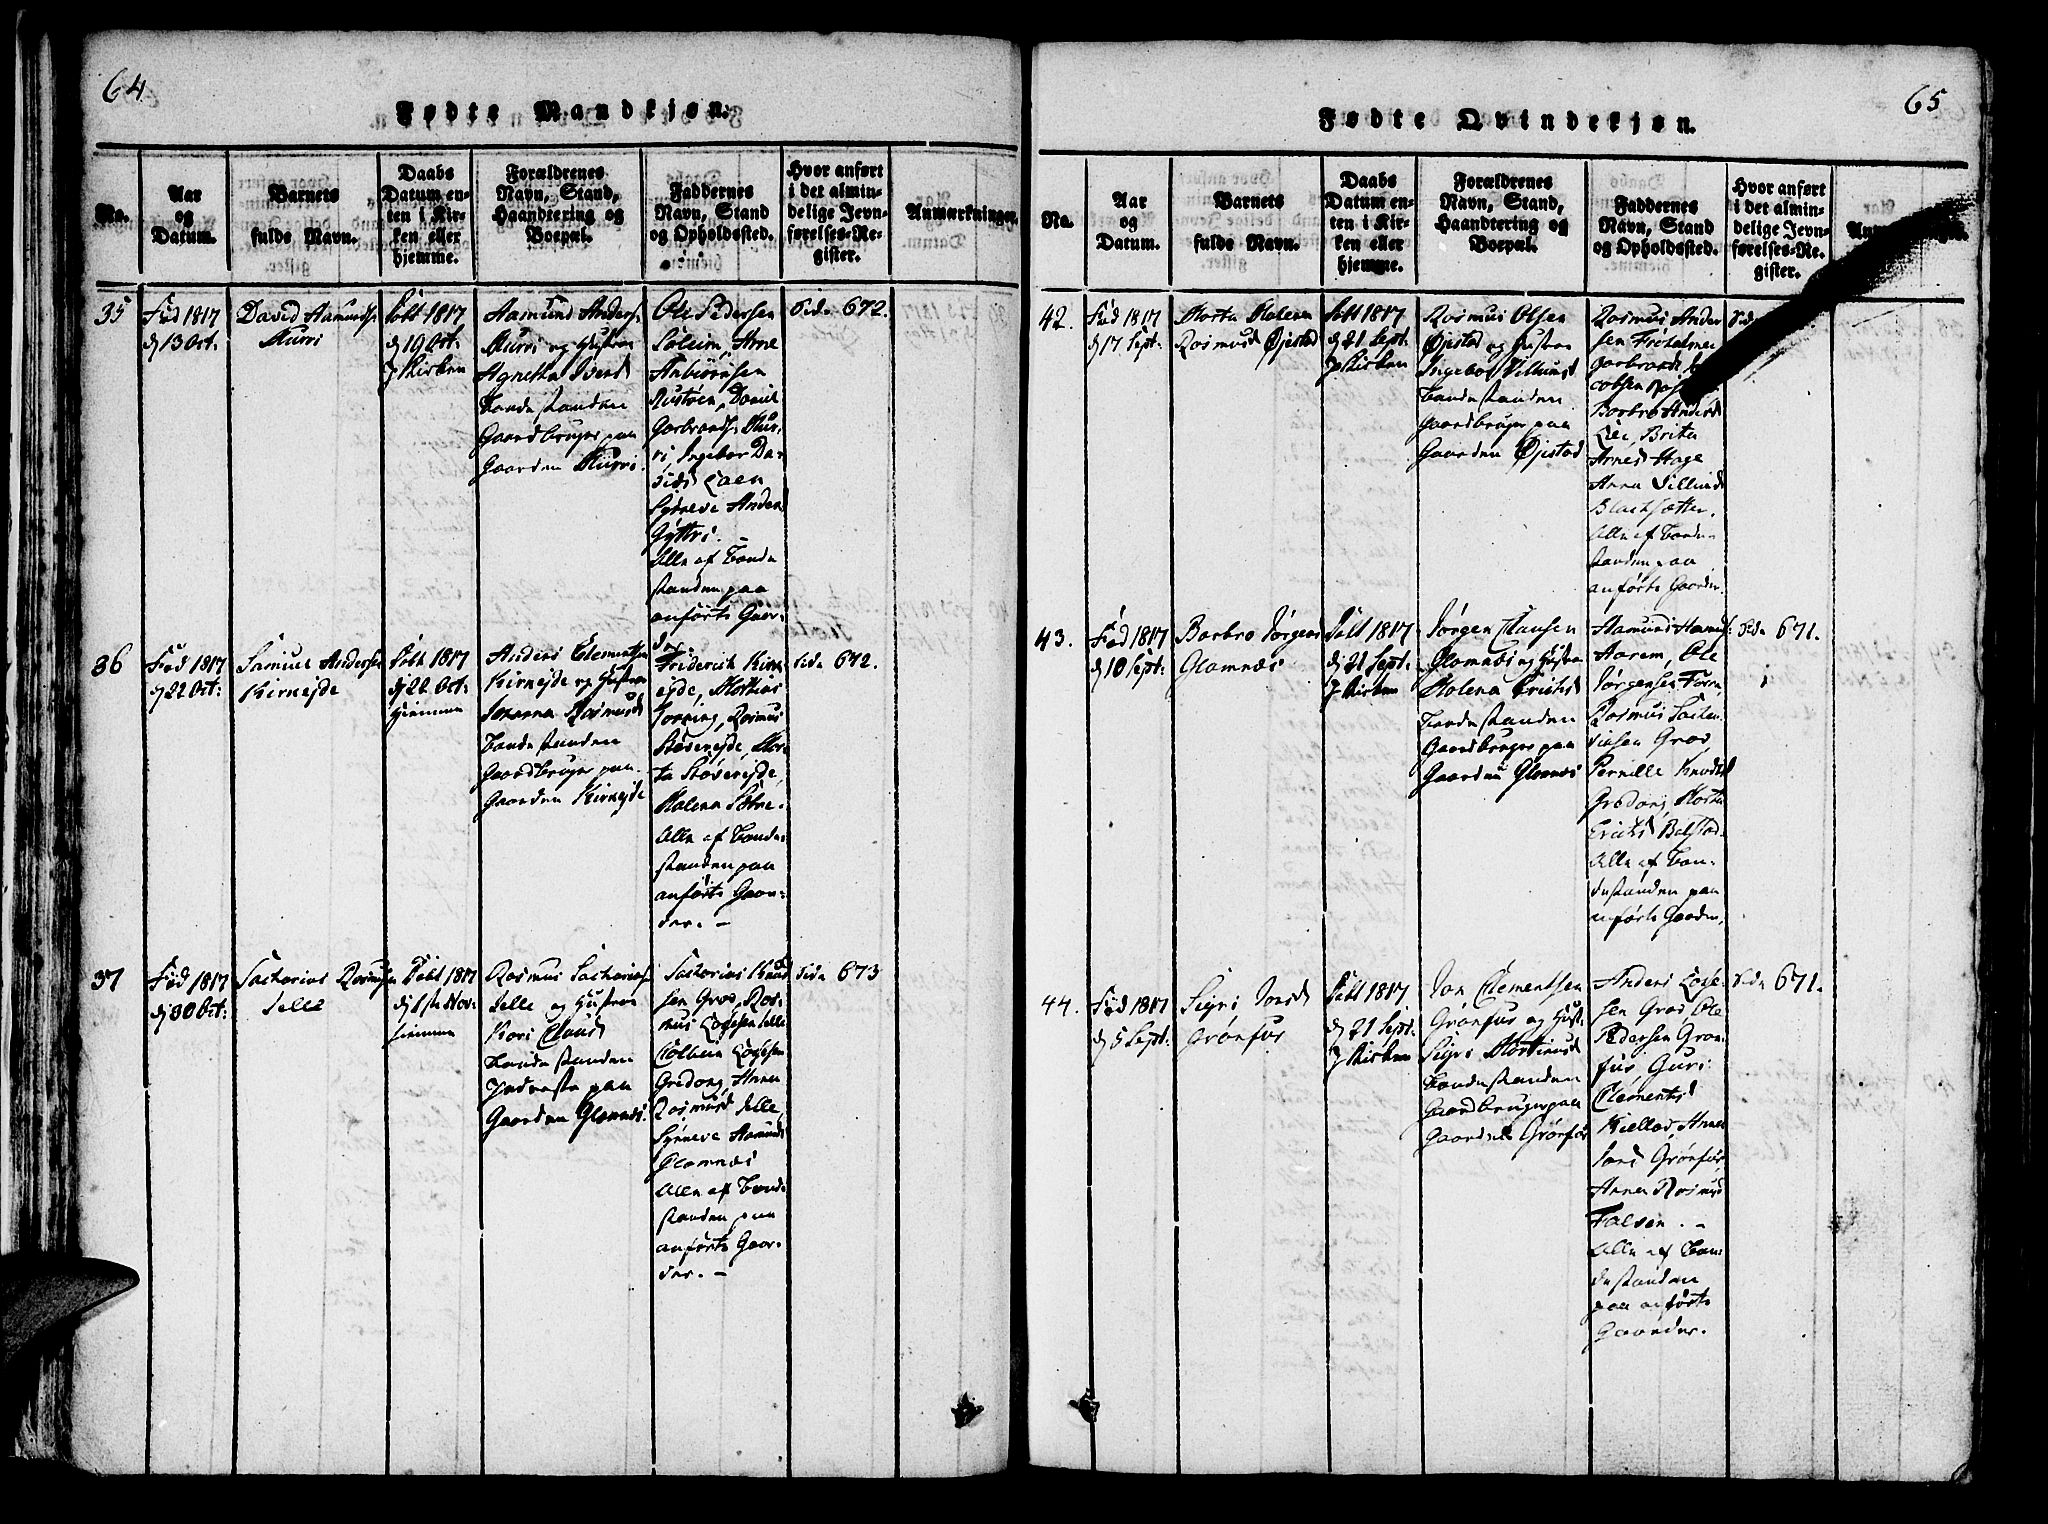 64.
Fødte Mandkjøn.
No.
Aar
og
Datum.
Barnets
fulde Navn.
Daabs
Datum en-
ten i Kir-
ken eller
hjemme.
Forældrenes
Navn, Stand,
Haandtering og
Boepæl.
Faddernes
Navn, Stand
og Opholdssted.
Hvor anført
i det almin-
delige Jevn-
førelses-Re-
gister.
Anmærkninger.
35
Fød 1817
d 13 Oct:
David Aamunds:
Murri
Døbt 1817
d 19 Oct:
J Kirken
Aamund Anders:
Murri og Hustru
Agnetha Iversd
Bondestanden
Gaardbruger paa
Gaarden Murri.
Ole Pedersen
Soleim, Arne
Anbiørnsen
Rustøen, Daniel
Garbrands: Mur-
ri, Ingebor Da-
vids Loen
Sydneve Anders
Gyttri.
Alle af Bonde
standen paa
anførte Gaar-
der.
Side 672.
36
Fød 1817
d 22 Oct:
Samuel Andersen
Kirnejde
Døbt 1817
d 22 Oct:
Hiemme
Anders Clementsen
Kirnejde og Hustru
Johanna Rasmusd
Bondestanden
Gaardbruger paa
Gaarden Kirnejde
Friderich Kirn
ejde, Mathias
Rasmus
Støverejde, Mar-
ta Støverejde,
Malena
Alle af Bonde-
standen paa
anførte Gaar-
der. —
Side 672.
37
Fød 1817
d 30 Oct:
Zacharias Rasmusen
Selle
Døbt 1817
d 1ste Nov:
hiemme
Rasmus Zacharias:
Selle og Hustru
Kari Clausd
Bondestanden
Inderste paa
Gaarden Glomnes.
Zacharias Knud
sen Grov, Ras-
mus Selle
Gredong, Anna
Rasmusd Selle,
Synneve Aamunds
Glomnæs
Alle af Bonde-
standen paa
anførte Gaar-
der. —
Side 673
65
Fødte Qvindekjøn.
No.
Aar
og
Datum.
Barnets
fulde Navn.
Daabs
Datum en-
ten i Kir-
ken eller
hjemme.
Forældrenes
Navn, Stand,
Haandtering og
Boepæl.
Faddernes
Navn, Stand
og Opholdssted.
Hvor anført
i det almin-
delige Jevn-
førelses-Re-
gister.
42.
Fød 1817
d 17 Sept:
Marta Malena
Rasmusd Øjestad
Døbt 1817
d 21 Sept:
J Kirken
Rasmus Olsen
Øjestad og Hustru
Ingebor Villumsd
Bondestanden
Gaardbruger paa
Gaarden Øjestad
Rasmus Ander
sen
Garbrand
cobsen
Barbro Andersd
Lee, Brita
Arnesd Hage
Anna Villumsd
Blachsætter.
Alle af Bonde-
standen paa
anførte Gaarder.
43.
Fød 1817
d 10 Sept:
Barbro Jørgensd
Glomnæs
Døbt 1817
d 21 Sept:
J Kirken
Jørgen Clausen
Glomnæs og Hustru
Malena Erichsd
Bondestanden
Gaardbruger paa
Gaarden Glomnes
Aarem, Ole
Jørgensen
Rasmus Zacha-
riasen Grov,
Pernille Knudsd
Gredong, Marta
Erichsd
Alle af Bon-
destanden paa
anførte Gaarder.
Side 671.
44.
Fød 1817
d 5 Sept:
Sigri Jonsd
Grønfur
Døbt 1817
d 21 Sept:
J Kirken
Jon Clementsen
Grønfur og Hust:
Sigri Mortensd
Bondestanden
Gaardbruger paa
Gaarden Grønfur
Anders
sen Grov, Ole
Pedersen Grøn-
fur, Guri
Clementsd
Anna
Jonsd Grønfur
Anna Rasmusd
Falsen. —
Alle af Bon-
destanden
paa anførte
Gaarder.
Side 671.